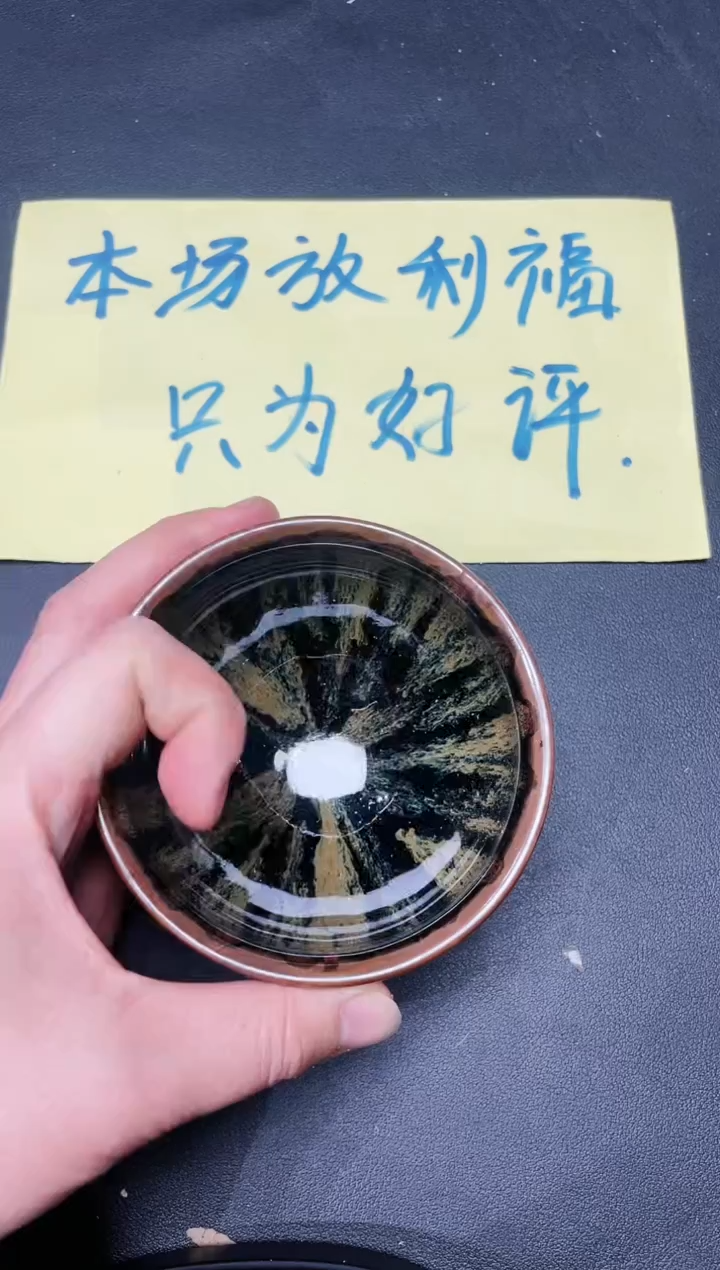 本场放利福
只为好评.